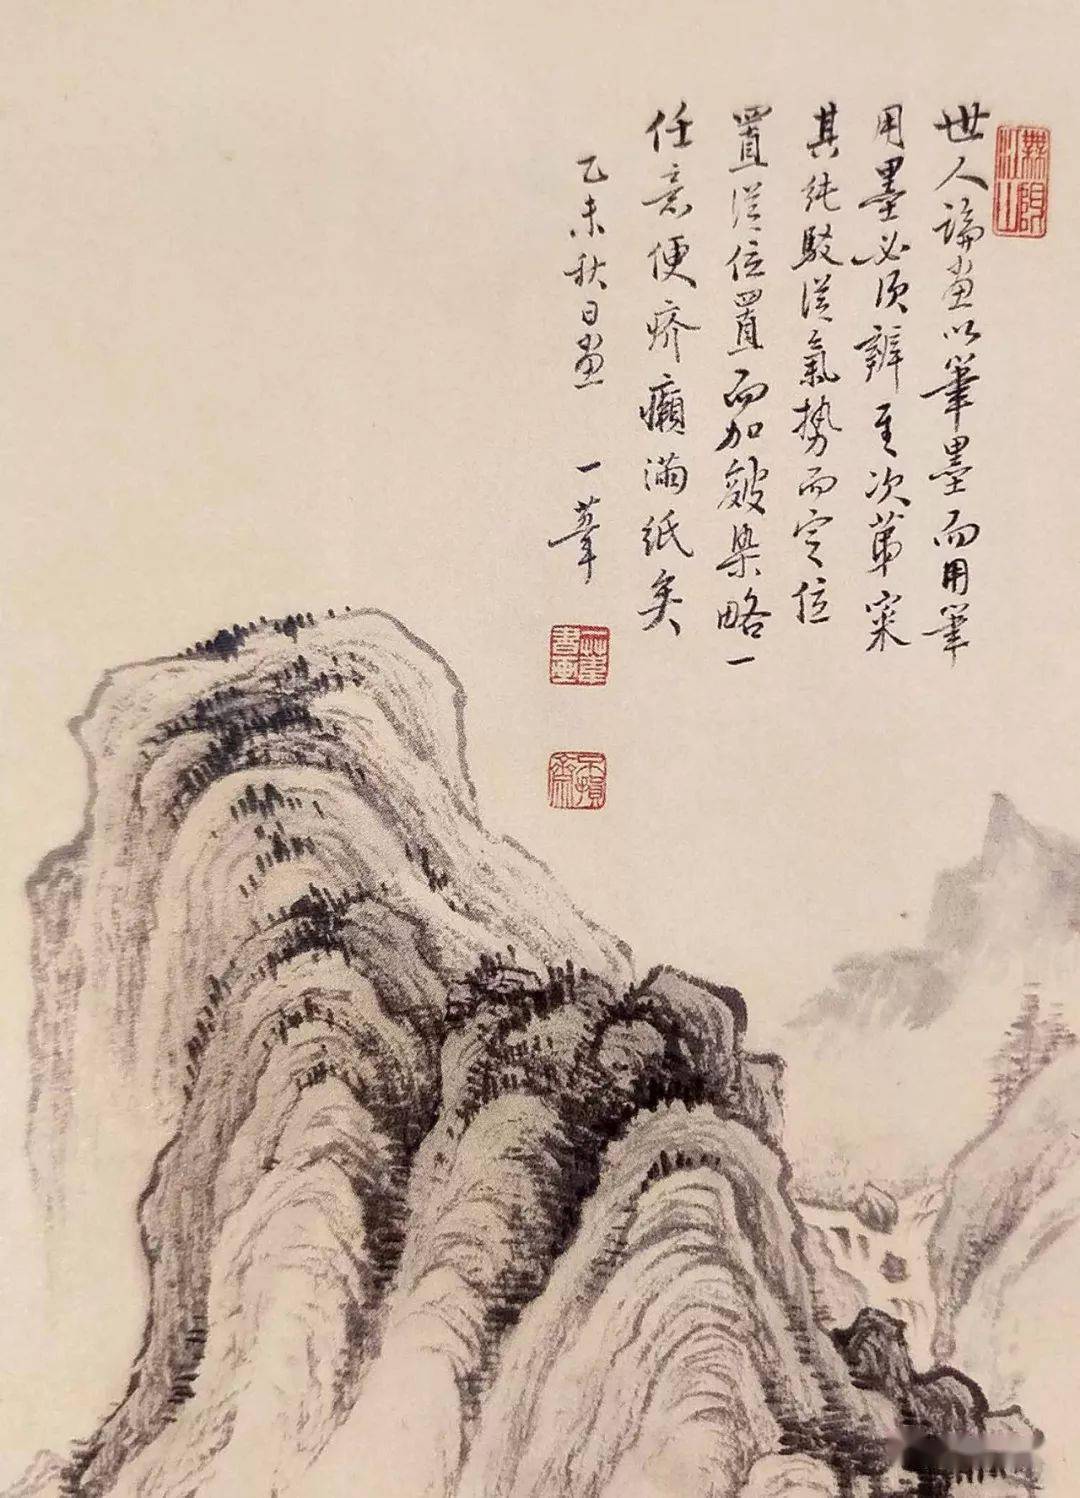 無限江山
世人論畫以筆墨而用筆
用墨必須辨其次第宷
其純駁從氣勢而定位
置從位置而加皴染略一
任意便疥癩滿紙矣
乙未秋日畫 一葦
一葦書畫